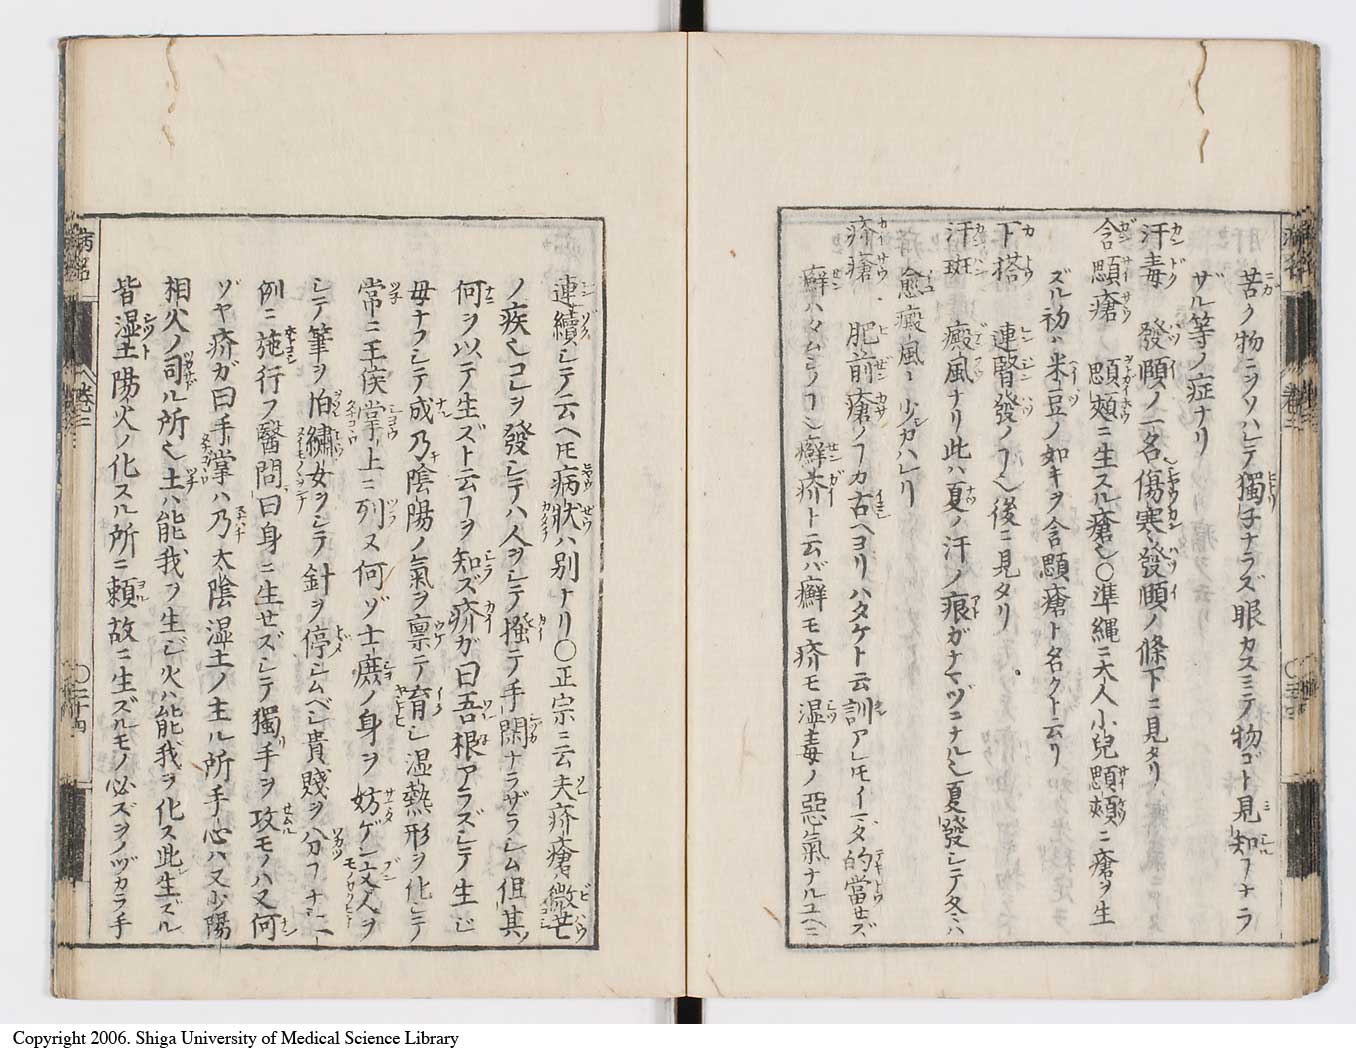 苦ク物ニソハレテ獨子ナラズ眼カスミテ物ゴト見知フナラ
ザル等ノ症ナリ
汗毒 發頤ノ一名傷寒發頤ノ條下ニ見タリ
含顋瘡 顋頰ニ生スル瘡也〇準縄ニ大人小兒顋頰ニ瘡ヲ生
ズル初ハ米豆ノ如キヲ含顋瘡ト名クト云リ
下搭 連腎發ノフ也後ニ見タリ
汗斑 癜風ナリ此ハ夏ノ汗ノ痕ガナマヅニナル也夏發シテ冬ハ
愈癜風ニ少カハレリ
疥瘡 肥前瘡ノフカ古ヘヨリハタケト云訓アレ𪜈イマダ的當セズ
癬ハタムシノフ也癬疥ト云バ癬モ疥モ湿毒ノ惡氣ナルユヘニ
連續シテ云ヘ𪜈病狀ハ別ナリ〇正宗ニ云夫疥瘡微芒
ノ疾也コレヲ發シテハ人ヲシテ搔テ手閑ナラザラシム但其
何ヲ以テ生ズト云フヲ知ズ疥ガ曰吾根アラズシテ生じ
母ナフシテ成乃陰陽ノ氣ヲ禀テ育シ湿熱形ヲ化シテ
常ニ王侯掌上ニ列ヌ何ゾ士庶ノ身ヲ妨ゲン文人ヲ
シテ筆ヲ怕繡女ヲシテ針ヲ停シムベシ貴賤ヲ分フナシ一
例ニ施行フ醫問曰身ニ生せズシテ獨手ヲ攻モノハ又何
ゾヤ疥ガ曰手掌ハ乃太陰湿土ノ主ル所手心ハ又少陽
相火ノ司ル所也土ハ能我ヲ生じ火ハ能我ヲ化ス此生ズル
皆湿土陽火ノ化スル所ニ頼故ニ生ズルモノ必ズヲノヅカラ手
病名
卷三
〇三十四
Copyright 2006. Shiga University of Medical Science Library